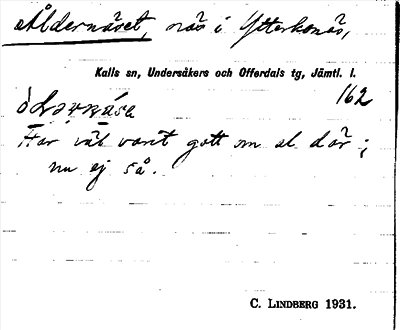 Åldernäset, näs i Ytterkonäs,
Kalls sn, Undersåkers och Offerdals tg, Jämtl. l.
162
Här väl varit gott om al där;
nu ej så.
C. LINDBERG 1931.